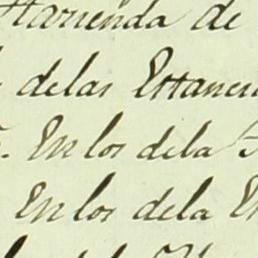 Hazienda de
delas Estancia
. En los dela
En los dela En